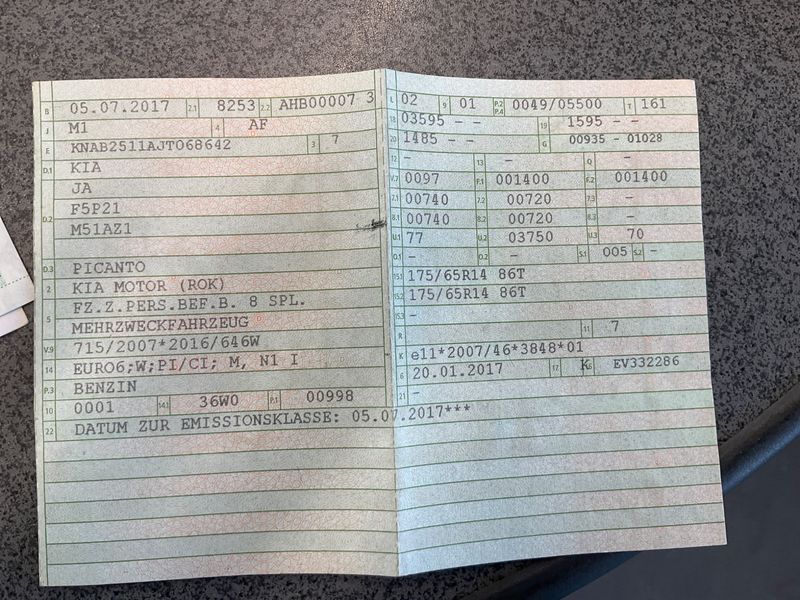 B 05.07.2017 2.1 8253 2.2 AHB00007 3
J M1 4 AF
E KNAB2511AJT068642 3 7
D.1 KIA
JA
D.2 F5P21
M51AZ1
D.3 PICANTO
2 KIA MOTOR (ROK)
5 FZ.Z.PERS.BEF.B. 8 SPL.
MEHRZWECKFAHRZEUG
V.9 715/2007*2016/646W
14 EURO6;W;PI/CI; M, N1 I
P.3 BENZIN
10 0001 14.1 36W0 P.1 00998
22 DATUM ZUR EMISSIONSKLASSE: 05.07.2017***
L 02 9 01 P.2 P.4 0049/05500 T 161
18 03595 - - 19 1595 - -
20 1485 - - G 00935 - 01028
12 - 13 - Q -
V.7 0097 F.1 001400 F.2 001400
7.1 00740 7.2 00720 7.3 -
8.1 00740 8.2 00720 8.3 -
U.1 77 U.2 03750 U.3 70
O.1 - O.2 - S.1 005 S.2 -
15.1 175/65R14 86T
15.2 175/65R14 86T
15.3 -
R 11 7
K e11*2007/46*3848*01
6 20.01.2017 17 K 16 EV332286
21 -